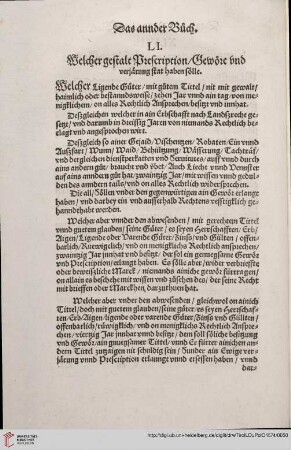 Das annder Büch.
LI.
Welcher gestalt Prescription/ Gewör vnd
verjärung stat haben sölle.
Welcher Ligende Güter/ mit gütem Tittel/ nit mit gewalt/
haimlich oder bestanndsweise/ zehen Jar vnnd ain tag/ von me-
nigklichen/ on alles Rechtlich Ansprechen/ besitzt vnd innhat.
Deßgleichen welcher in ain Erbschafft nach Landsrecht ge-
setzt/ vnd darumb in dreissig Jaren von niemands Rechtlich be-
klagt vnd angesprochen wirt.
Deßgleich so ainer Gejaid/ Vischentzen/ Robaten/ Ein vnnd
Außfart/ Wunn/ Waid/ Behültzung/ Wässerung/ Tachträf/
vnd dergleichen dienstperkaiten vnd Servitutes/ auff vnnd durch
ains andern güt/ braucht vnd übet/ Auch Liecht vnnd Vennster
auf ains anndern güt hat/ zwaintzig Jar/ mit wissen vnnd gedul-
den des anndern tails/ vnd on alles Rechtlich widersprechen.
Die all/ Söllen wider den gegenwürtigen ain Gewör erlangt
haben/ vnd darbey ein vnd ausserhalb Rechtens vesstigklich ge-
hanndthabt werden.
Welcher aber vnnder den abwesenden/ mit gerechtem Tittel
vnnd guetem glauben/ seine Güter/ es seyen Herrschafften/ Erb/
Aigen/ Ligende oder Varende Güter/ Zinß/ vnd Gülten/ offen-
barlich/ Rüewigelich/ vnd on menigklichs Rechtlich ansprechen/
zwaintzig Jar innhat vnd besitzt/ der sol ein gemainsame Gewör
vnd Prescription/ erlangt haben. Es sölle aber/ wider verbriefft
oder beweisliche Marck/ niemands ainiche gewör fürtragen/
on allain es beschehe mit wissen vnd zusehen des/ der seine Recht
mit brieffen oder Marckhen/ darzuthuen hat.
Welcher aber vnder den abwesenden/ gleichwol on ainich
Tittel/ doch mit guetem glauben/ seine güter/ es seyen Herrschaf-
ften/ Erb/ Aigen/ ligende oder varende Güter/ Zinß vnd Gülten/
offenbarlich/ rüwigklich/ vnd on menigklichs Rechtlich Anspre-
chen/ viertzig Jar innhat vnnd besitzt/ dem soll söliche besitzung
vnd Gewör/ ain gnuegsamer Tittel/ vnnd Er fürter ainichen an-
dern Tittel zutzaigen nit schuldig sein/ Sunder ain Ewige ver-
järung vnnd Prescription erlangt vnnd ersessen haben/ vnnd
dar-